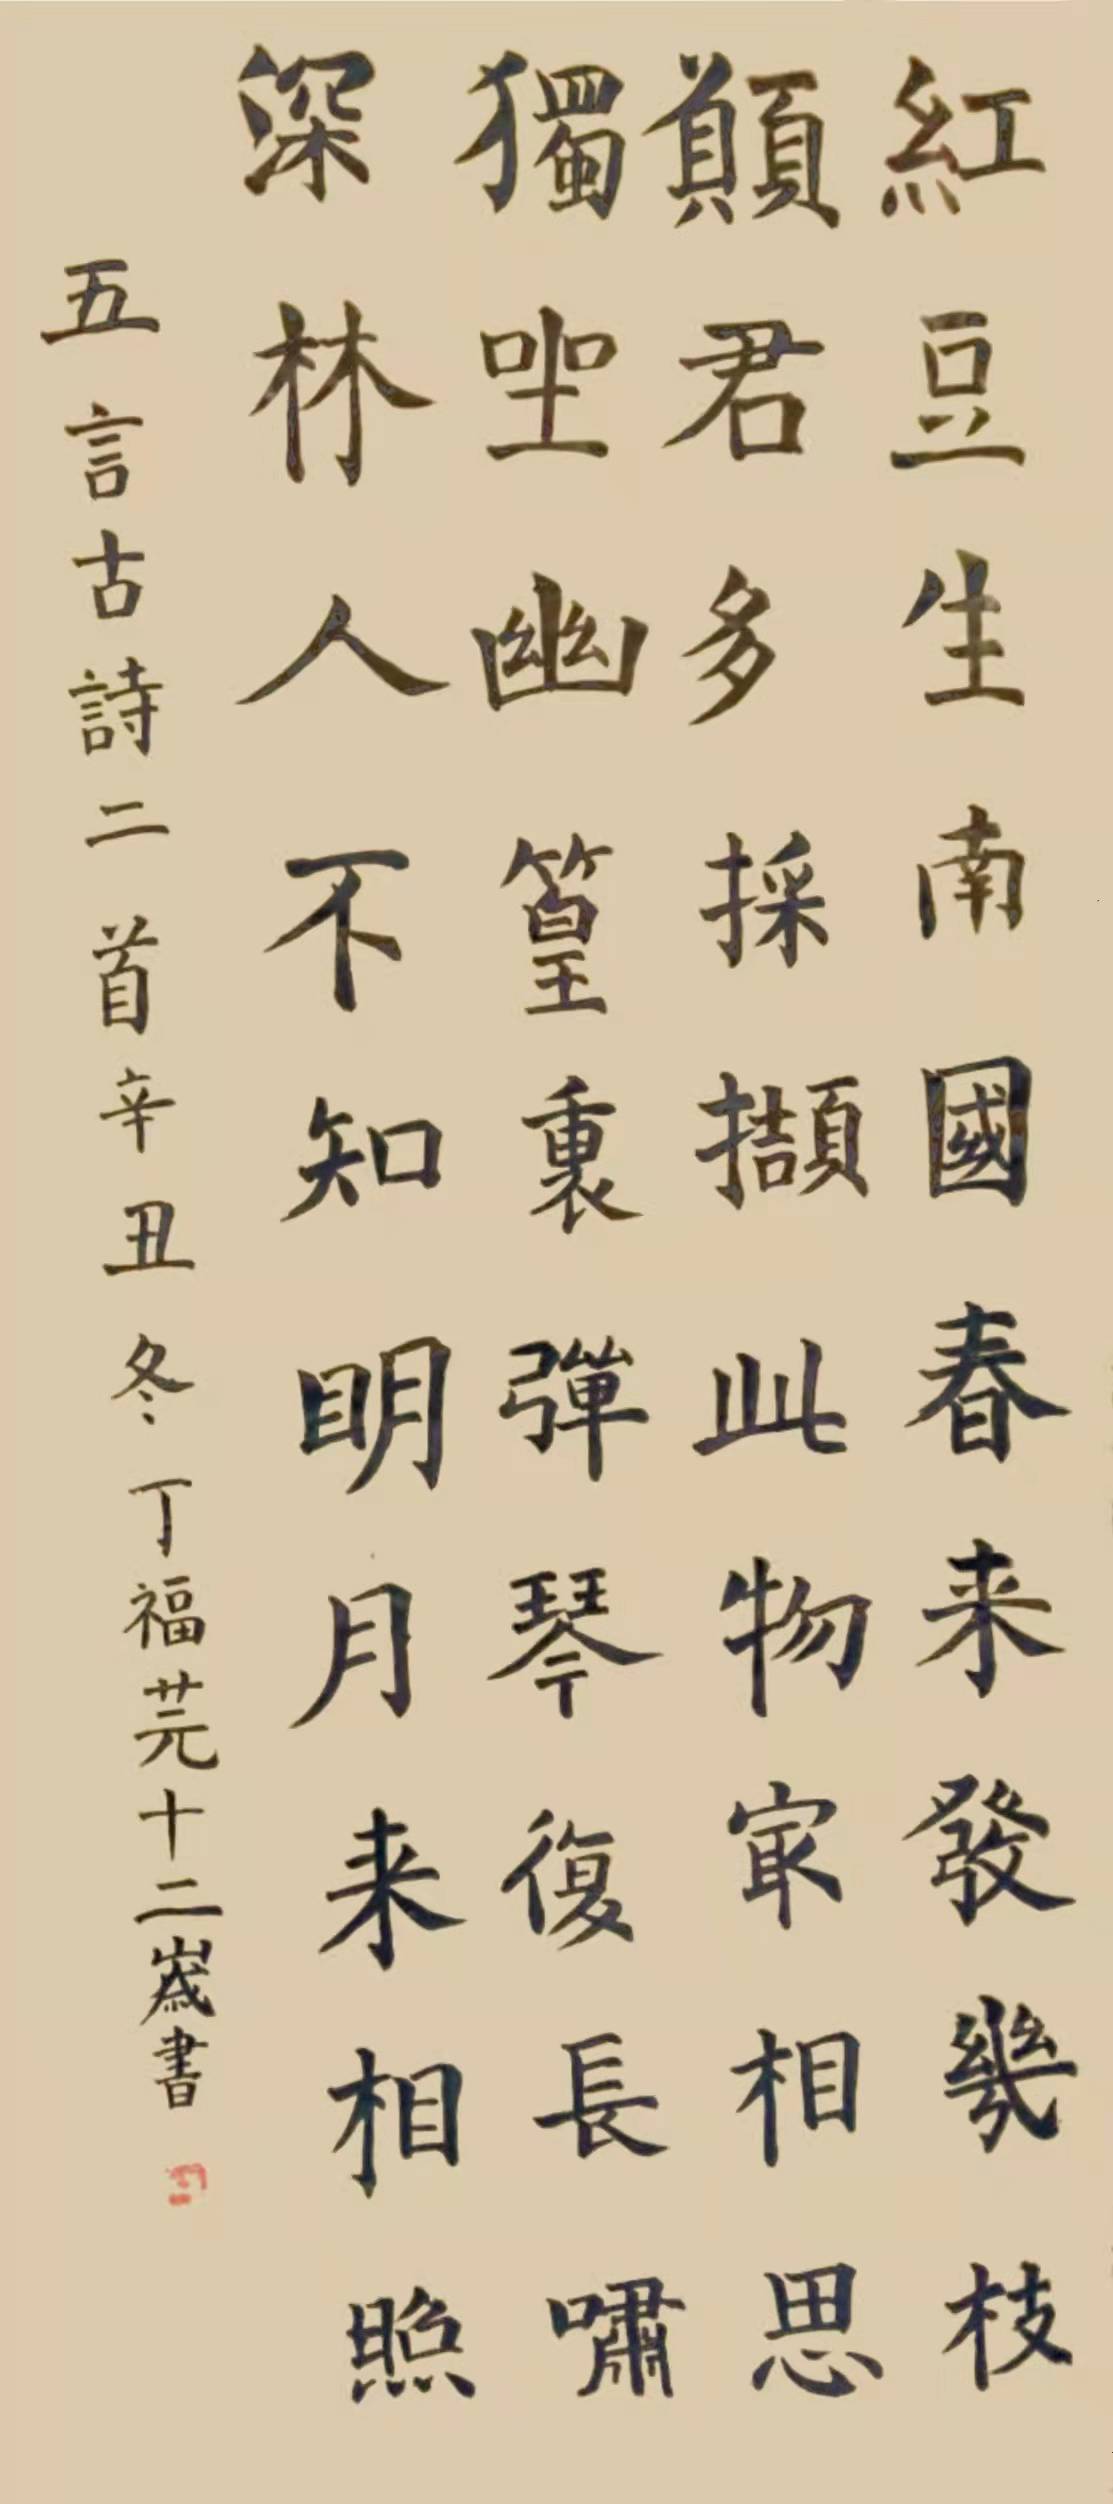 紅豆生南國春来發幾枝
願君多採擷此物㝡相思
獨坐幽篁裏彈琴復長嘯
深林人不知明月来相照
五言古詩二首辛丑冬丁福芫十二歲書